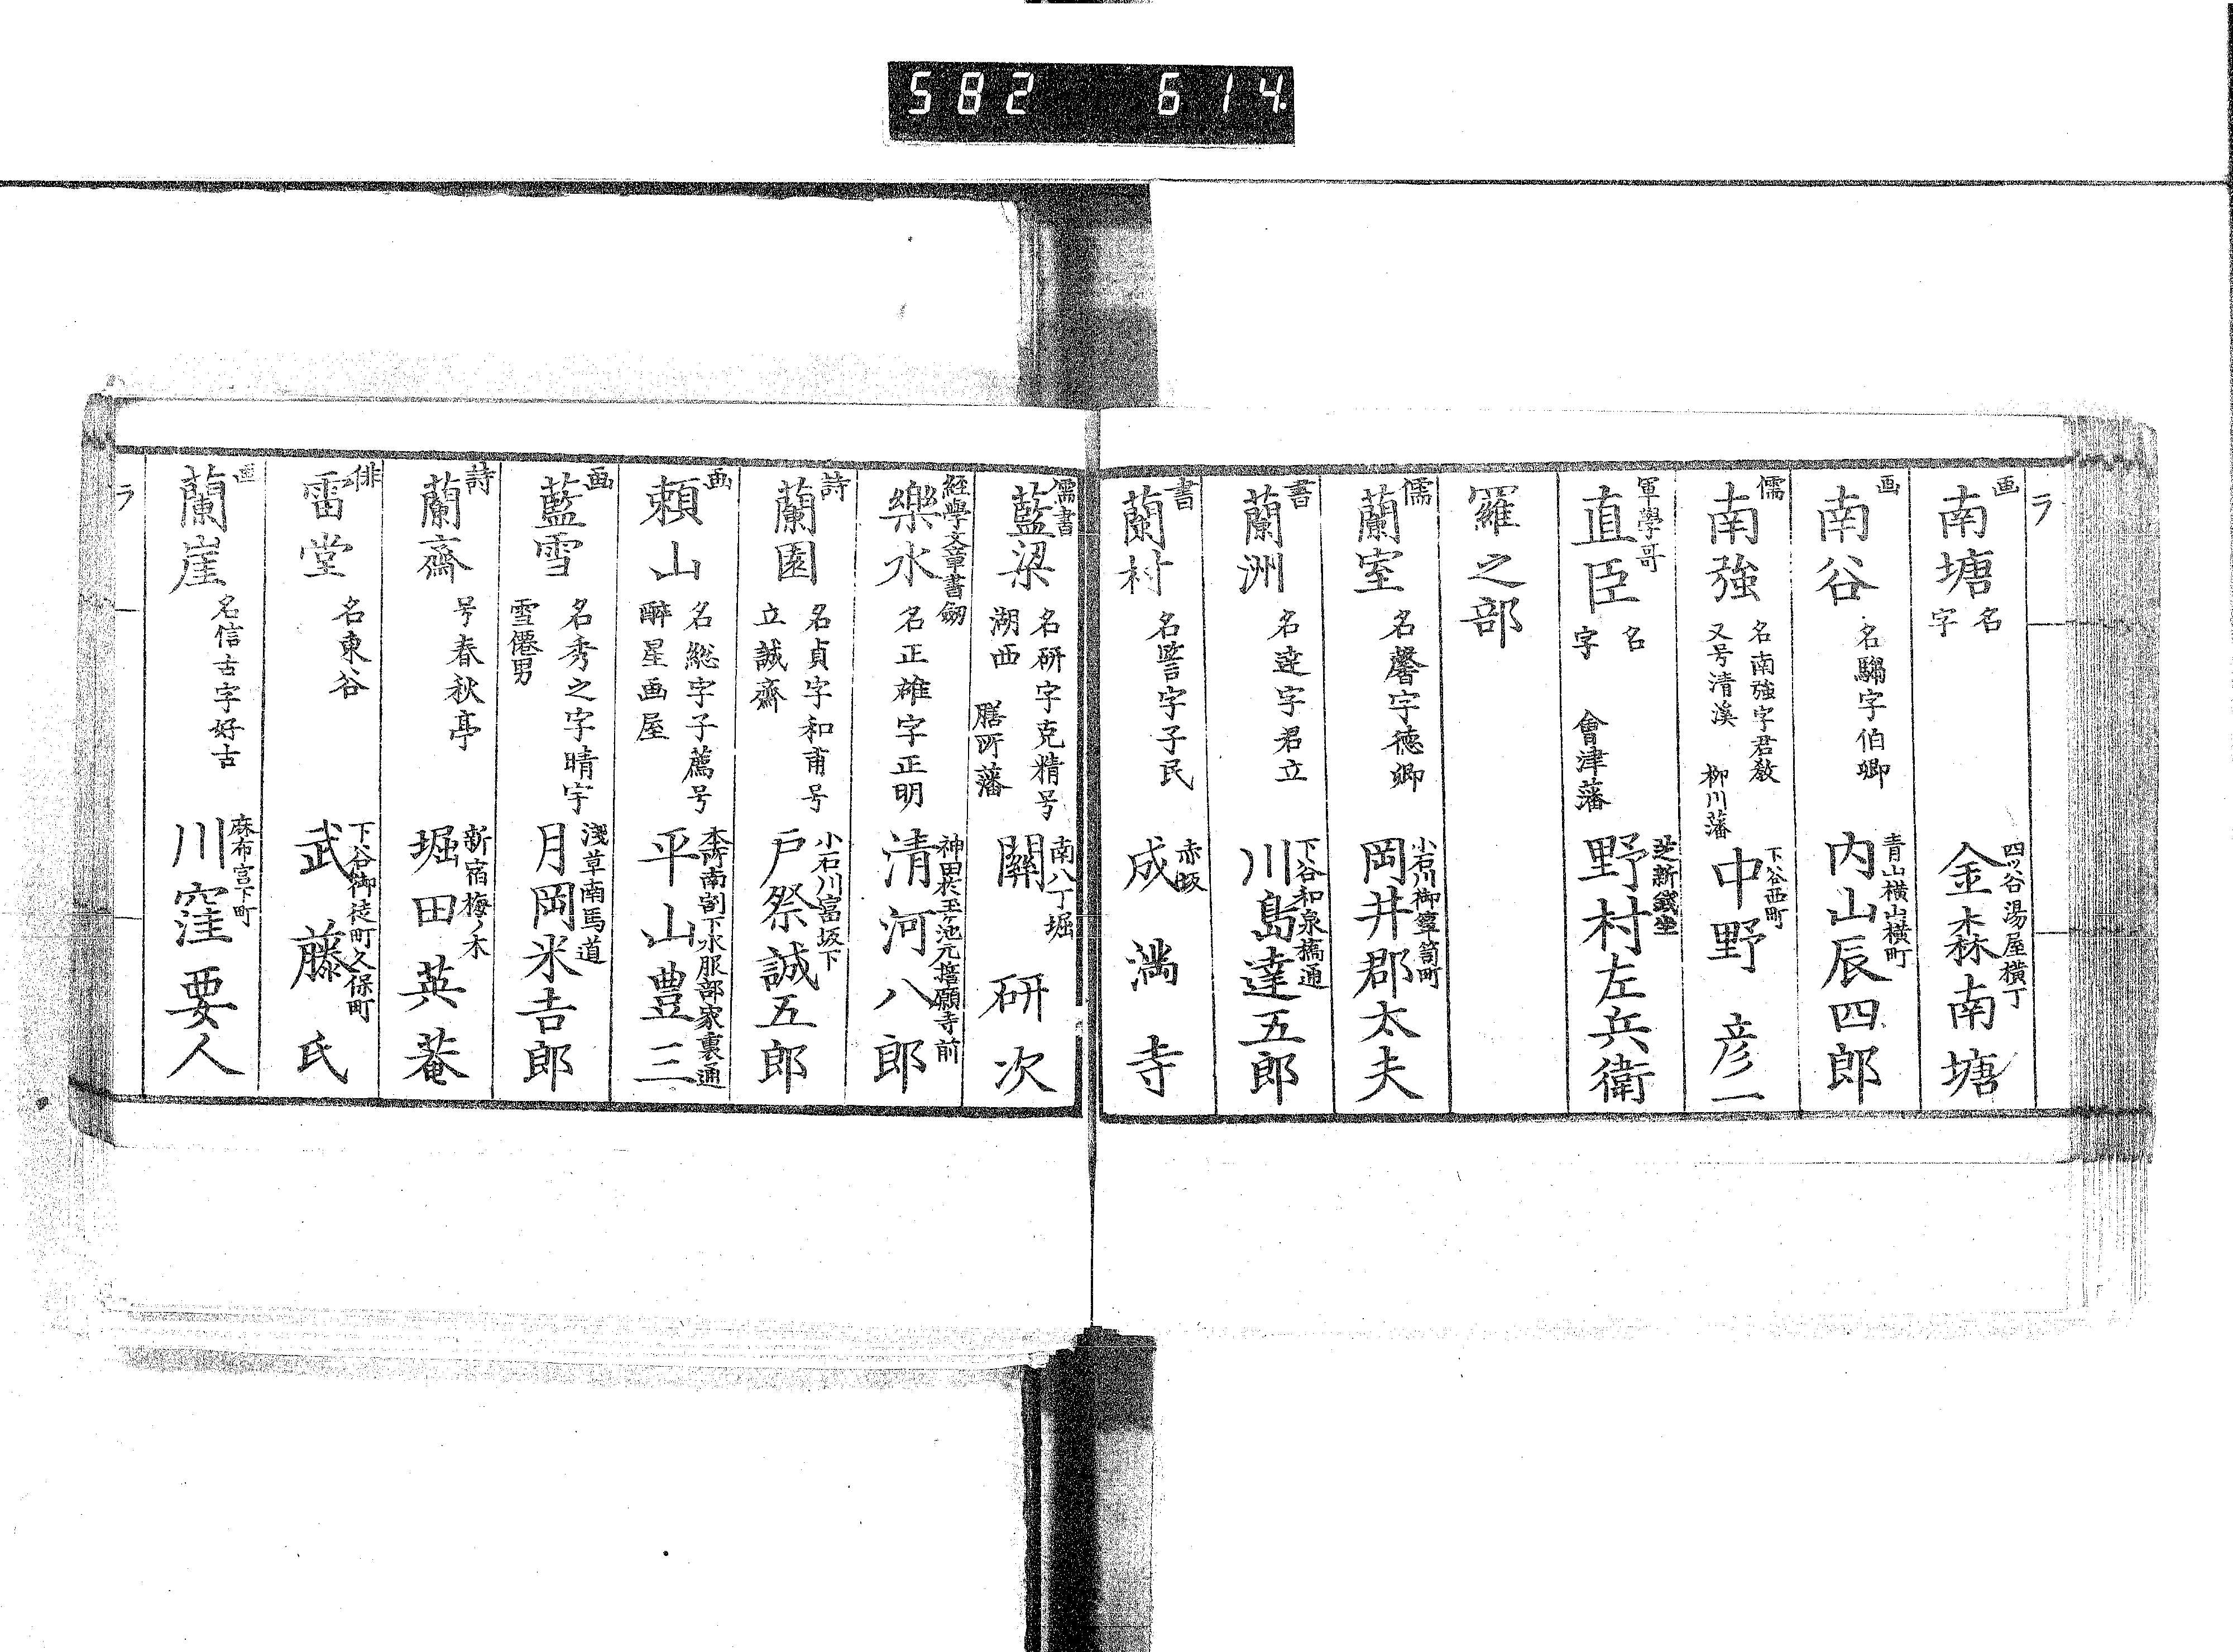 582 614.
ラ
画
南塘
名
字
四ツ谷湯屋横丁
金森南塘
画
南谷
名驪字伯卿
青山横山横町
内山辰四郎
儒
南強
名南強字君教
又号清溪 柳川藩
下谷西町
中野彦一
軍學哥
直臣
名
字 會津藩
芝新銭座
野村左兵衛
羅之部
儒
蘭室
名馨字徳卿
小石川御箪笥町
岡井郡太夫
書
蘭洲
名達字君立
下谷和泉橋通
川島達五郎
書
蘭村
名誓字子民
赤坂
成満寺
儒書
藍梁
名研字克精号
湖西 膳所藩
南八丁堀
關研次
経學文章書劔
樂水
名正雄字正明
神田於玉ヶ池元誓願寺前
清河八郎
詩
蘭園
名貞字和甫号
立誠齋
小石川富坂下
戸祭誠五郎
画
頼山
名総字子薦号
酔星画屋
本所南割下水服部家裏通
平山豊三
画
藍雪
名秀之字晴宇
雪僊男
淺草南馬道
月岡米吉郎
詩
蘭齋
号春秋亭
新宿梅ノ木
堀田英菴
俳
雷堂
名東谷
下谷御徒町久保町
武藤氏
画
蘭崖
名信古字好古
麻布宮下町
川窪要人
ラ